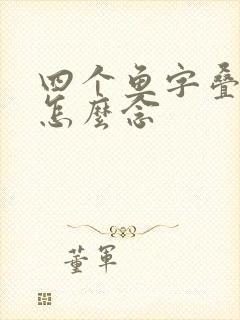 四个鱼字叠
怎麽念
董军